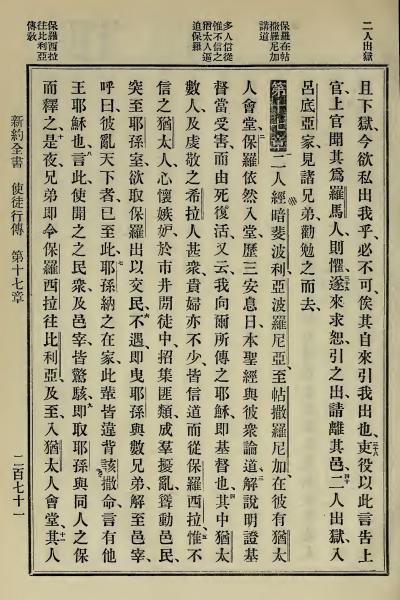 二人出獄
保羅在帖
撒羅尼加
講道
多人信從
惟不信之
猶太人逼
迫保羅
保羅西拉
往比利亞
傳教
且下獄、今欲私出我乎、必不可、俟其自來引我出也、吏役以此言告上
官、上官聞其爲羅馬人則懼、遂來求恕、引之出、請離其邑、二人出獄、入
呂底亞家、見諸兄弟、勸勉之而去、
第十七章 二人經暗斐波利、亞波羅尼亞、至帖撒羅尼加、在彼有猶太
人會堂、保羅依然入堂、歷三安息日、本聖經與彼衆論道、解說明證基
督當受害、而由死復活、又云、我向爾所傳之耶穌、即基督也、其中猶太
數人、及虔敬之希拉人甚衆、貴婦亦不少、皆信道而從保羅西拉、惟不
信之猶太人、心懷嫉妒、於市井閒徒中、招集匪類、成羣擾亂、聳動邑民、
突至耶孫室、欲取保羅出以交民、不遇、即曳耶孫與數兄弟、解至邑宰、
呼曰、彼亂天下者、已至此、耶孫納之在家、此輩皆違背該撒命、言有他
王耶穌也、言此使聞之之民衆及邑宰皆驚駭、即取耶孫與同人之保
而釋之、是夜兄弟即令保羅西拉往比利亞、及至、入猶太人會堂、其人
新約全書 使徒行傳 第十七章 二百七十一